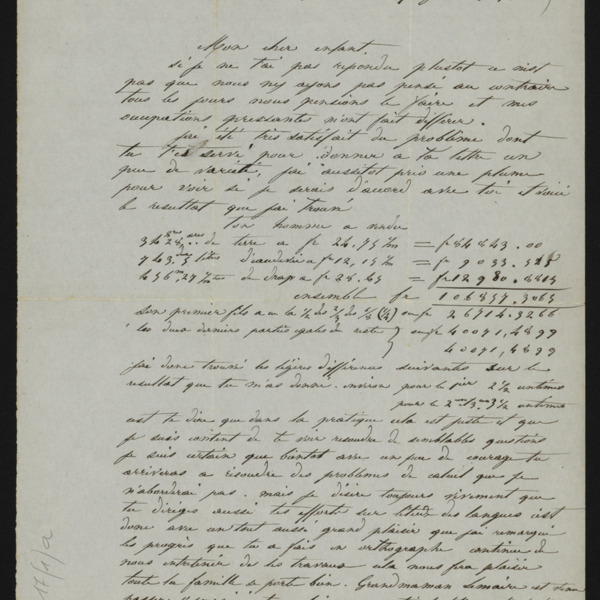 Mon cher enfant.
Si je ne t'ai pas repondu plustot ce n'est
pas que nous n'y ayons pas pensé au contraire
tous les jours nous pensions le faire et mes
occupations pressantes m'ont fait differer.
J'ai été très satisfait du problème dont
tu t'es servi pour donner a ta lettre un
peu de varieté, j'ai aussitot pris une plume
pour voir si je serais d'accord avec toi et voici
le resultat que j'ai trouvé
Ton homme a vendu
de terre a fr 24.75 = fr 84843.00
743. litres d'eau de vie a fr 12,15 = fr 9033.
456 27 de drap a fr 28.45 = fr 12980.8815
ensemble fr 106857.3065
Son premier fils a eu la 1/2 des 2/3 des (1/4) ou fr 26714.3266
les deux derniers parties egales du reste ou fr 40071,4899
40071,4899
j'ai donc trouvé les légères différences suivantes sur le
resultat que tu m'as donné. environ pour le 1er 2 1/2 centimes
pour le 2me 3me 3 1/2 centimes
c'est te dire que dans la pratique cela est juste et que
je suis content de te voir resoudre de semblables questions
je suis certain que bientot avec un peu de courage tu
arriveras a résoudre des problèmes de calcul que je
n'aborderai pas. mais je désire toujours vivement que
tu diriges aussi tes efforts sur l'étude des langues c'est
donc avec un tout aussi grand plaisir que j'ai remarqué
les progrès que tu a fais en orthographe continue de
nous entretenir de tes travaux cela nous fera plaisir
toute la famille se porte bien. Grandmaman Lemaire est
17/4/a